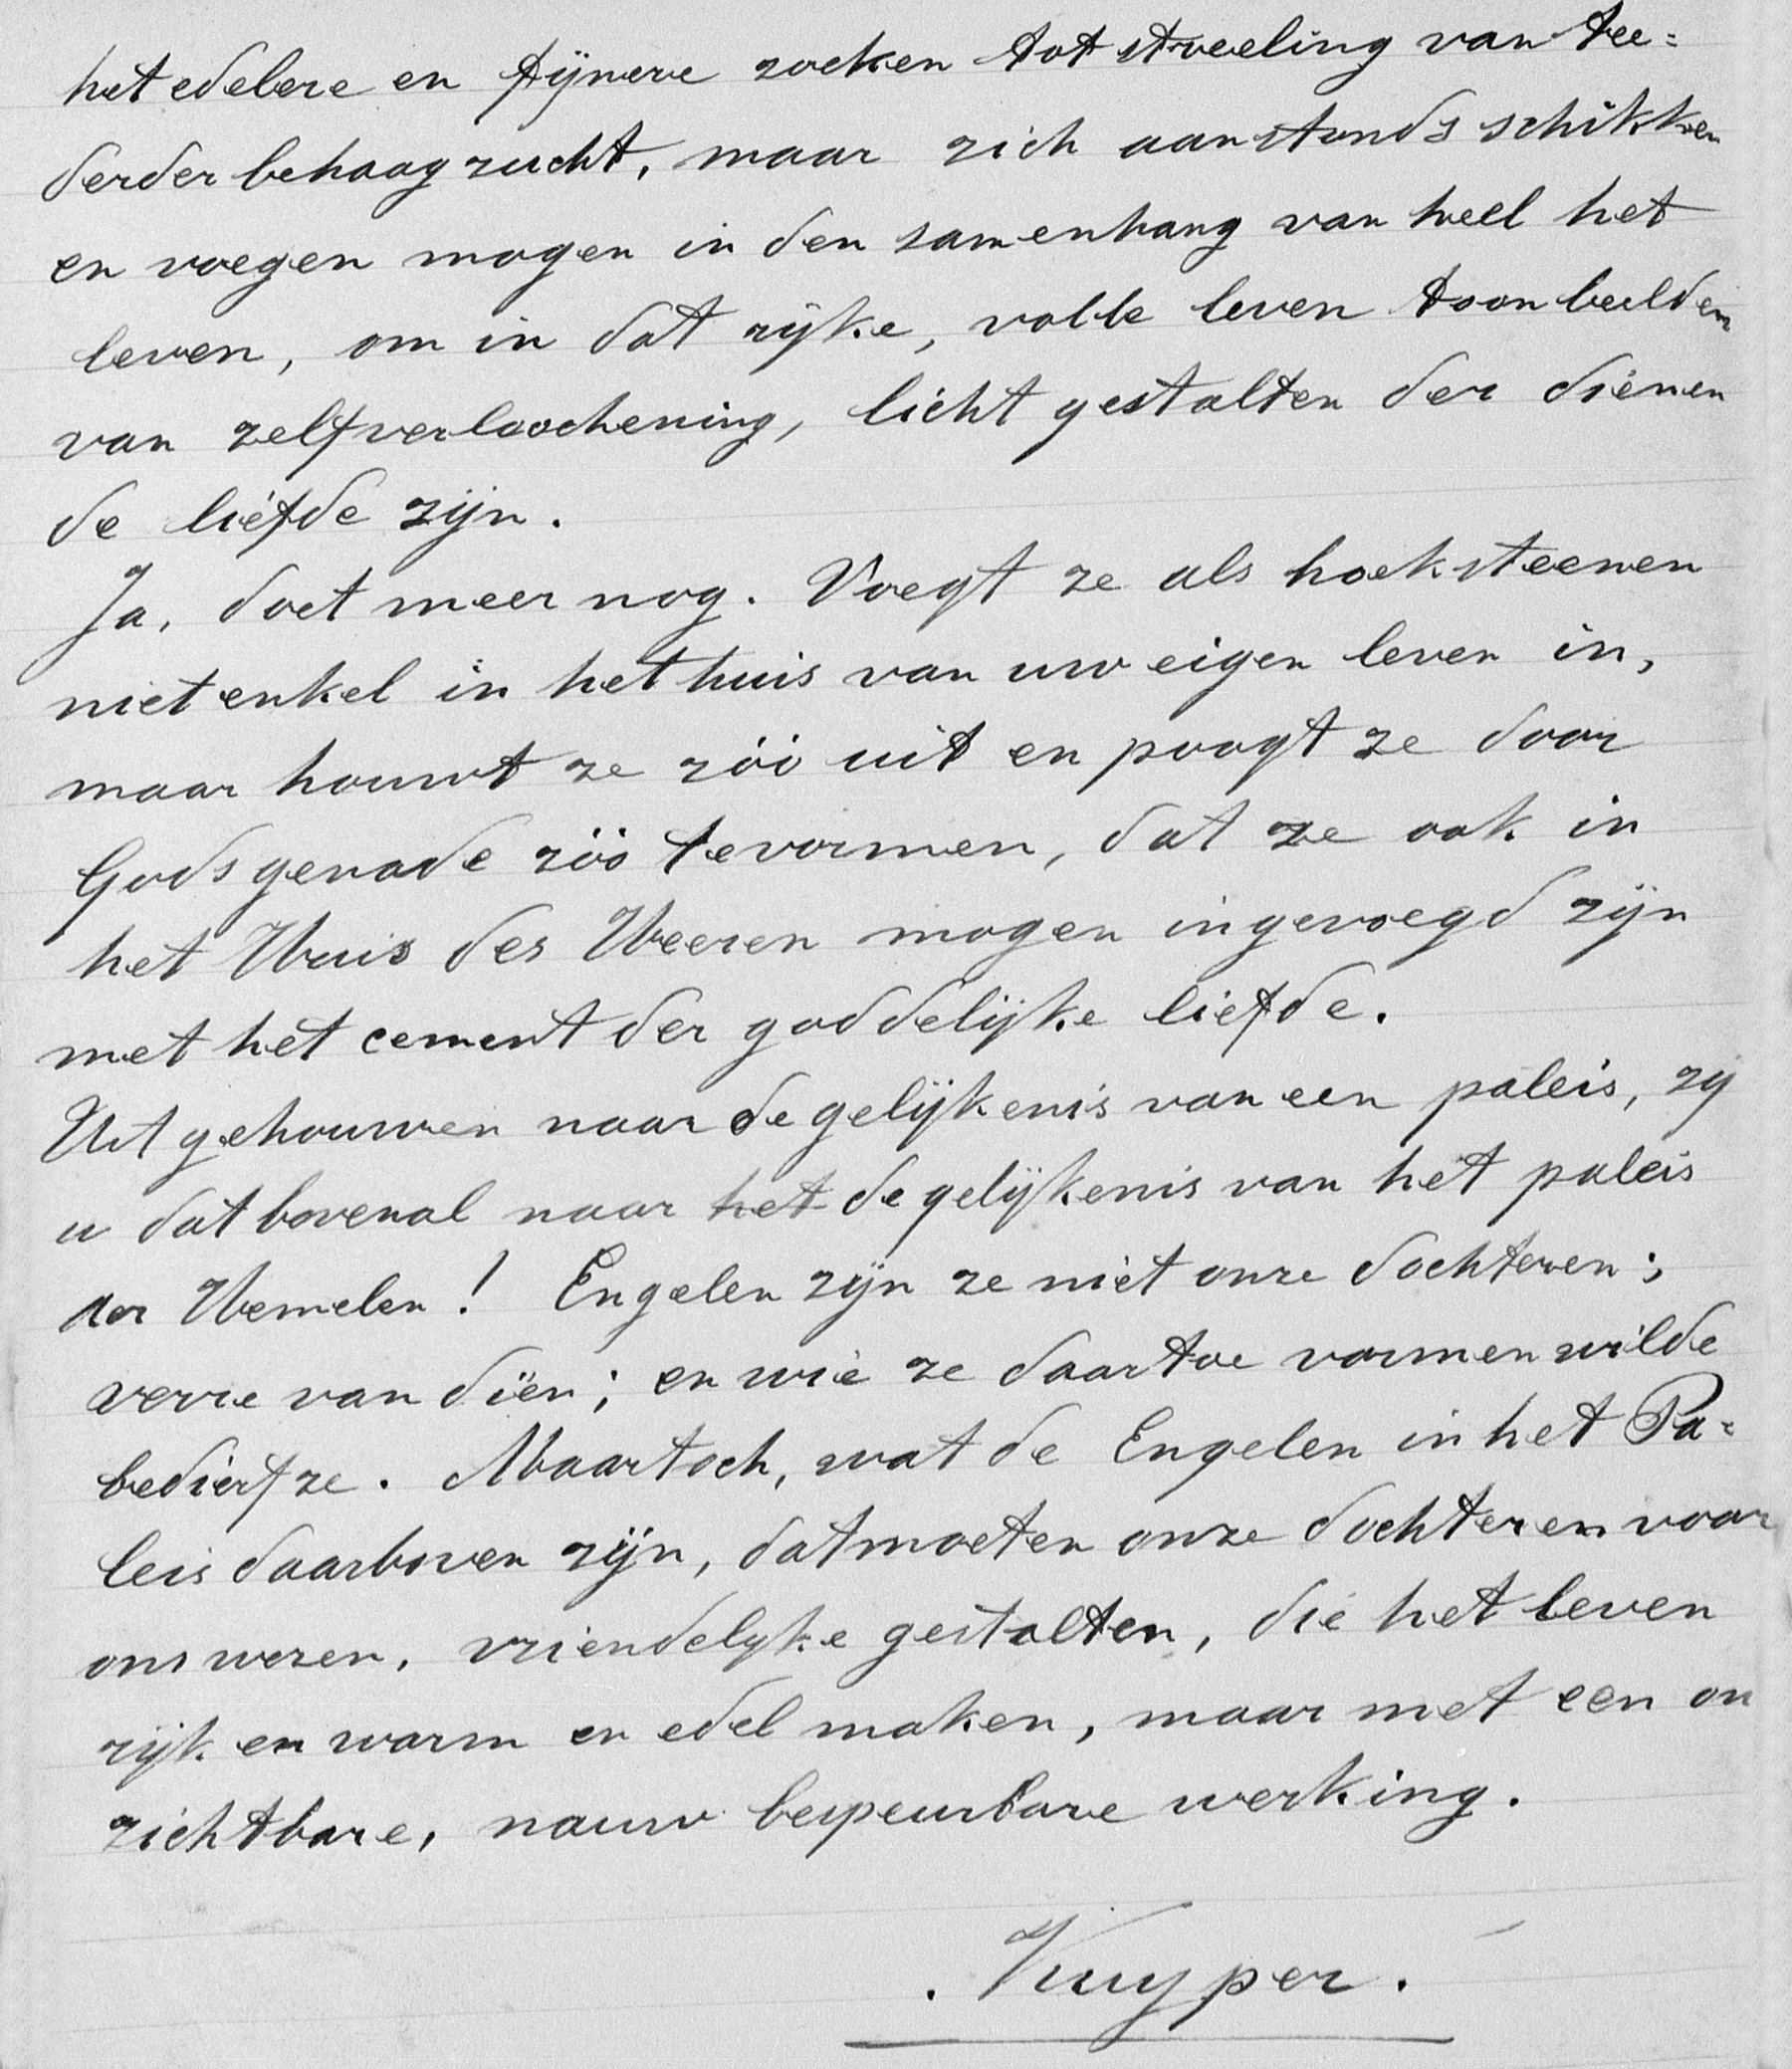 het edelere en fijnere zoeken tot streeling van tee=
derder behaagzucht, maar zich aanstonds schikken
en voegen mogen in den samenhang van heel het
leven, om in dat rijke, volle leven toonbeelden
van zelfverloochening, lichtgestalten der dienen
de liefde zijn.
Ja, doet meer nog. Voegt ze als hoeksteenen
niet enkel in het huis van uw eigen leven in,
maar houwt ze zóó uit en poogt ze door
Gods genade zóó te vormen, dat ze ook in
het Huis des Heeren mogen ingevoegd zijn
met het cement der goddelijke liefde.
Uitgehouwen naar de gelijkenis van een paleis, zy
u dat bovenal naar het de gelijkenis van het paleis
der Hemelen! Engelen zijn ze niet onze dochteren;
verre van dien; en wie ze daartoe vormen wilde
bedierf ze. Maar toch, wat de Engelen in het Pa=
leis daarboven zijn, dat moeten onze dochteren voor
ons wezen, vriendelyke gestalten, die het leven
rijk en warm en edel maken, maar met een on
zichtbare, nauw bespeurbare werking.
. Kuyper.